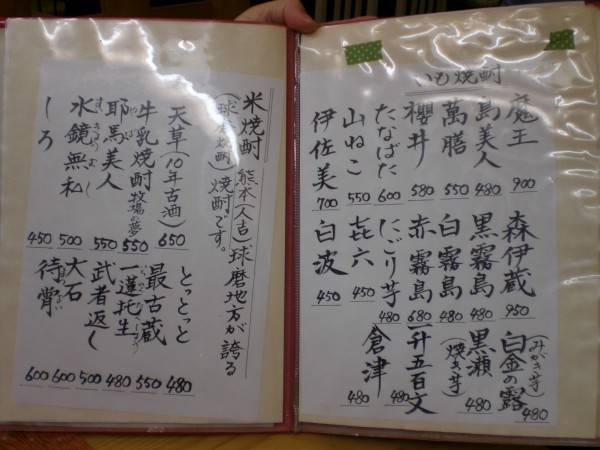 いも焼酎
魔王 900
島美人 480
萬膳 550
櫻井 580
たなばた 600
山ねこ 550
伊佐美 700
森伊蔵 950
黒霧島 480
白霧島 480
赤霧島 680
にごり芋 480
㐂六 450
白波 450
白金の露 (みがき芋) 480
黒瀬 (焼き芋) 480
一升五百文 480
倉津 480
米焼酎 熊本(人吉)球磨地方が誇る
(球磨焼酎)焼酎です。
天草(10年古酒) 650
牛乳焼酎 牧場の夢 550
耶馬美人 やばびじん 550
水鏡無私 すいきょうむし 500
しろ 450
とっとっと 480
最古蔵 550
一蓮托生 480
武者返し 500
大石 600
待宵 600